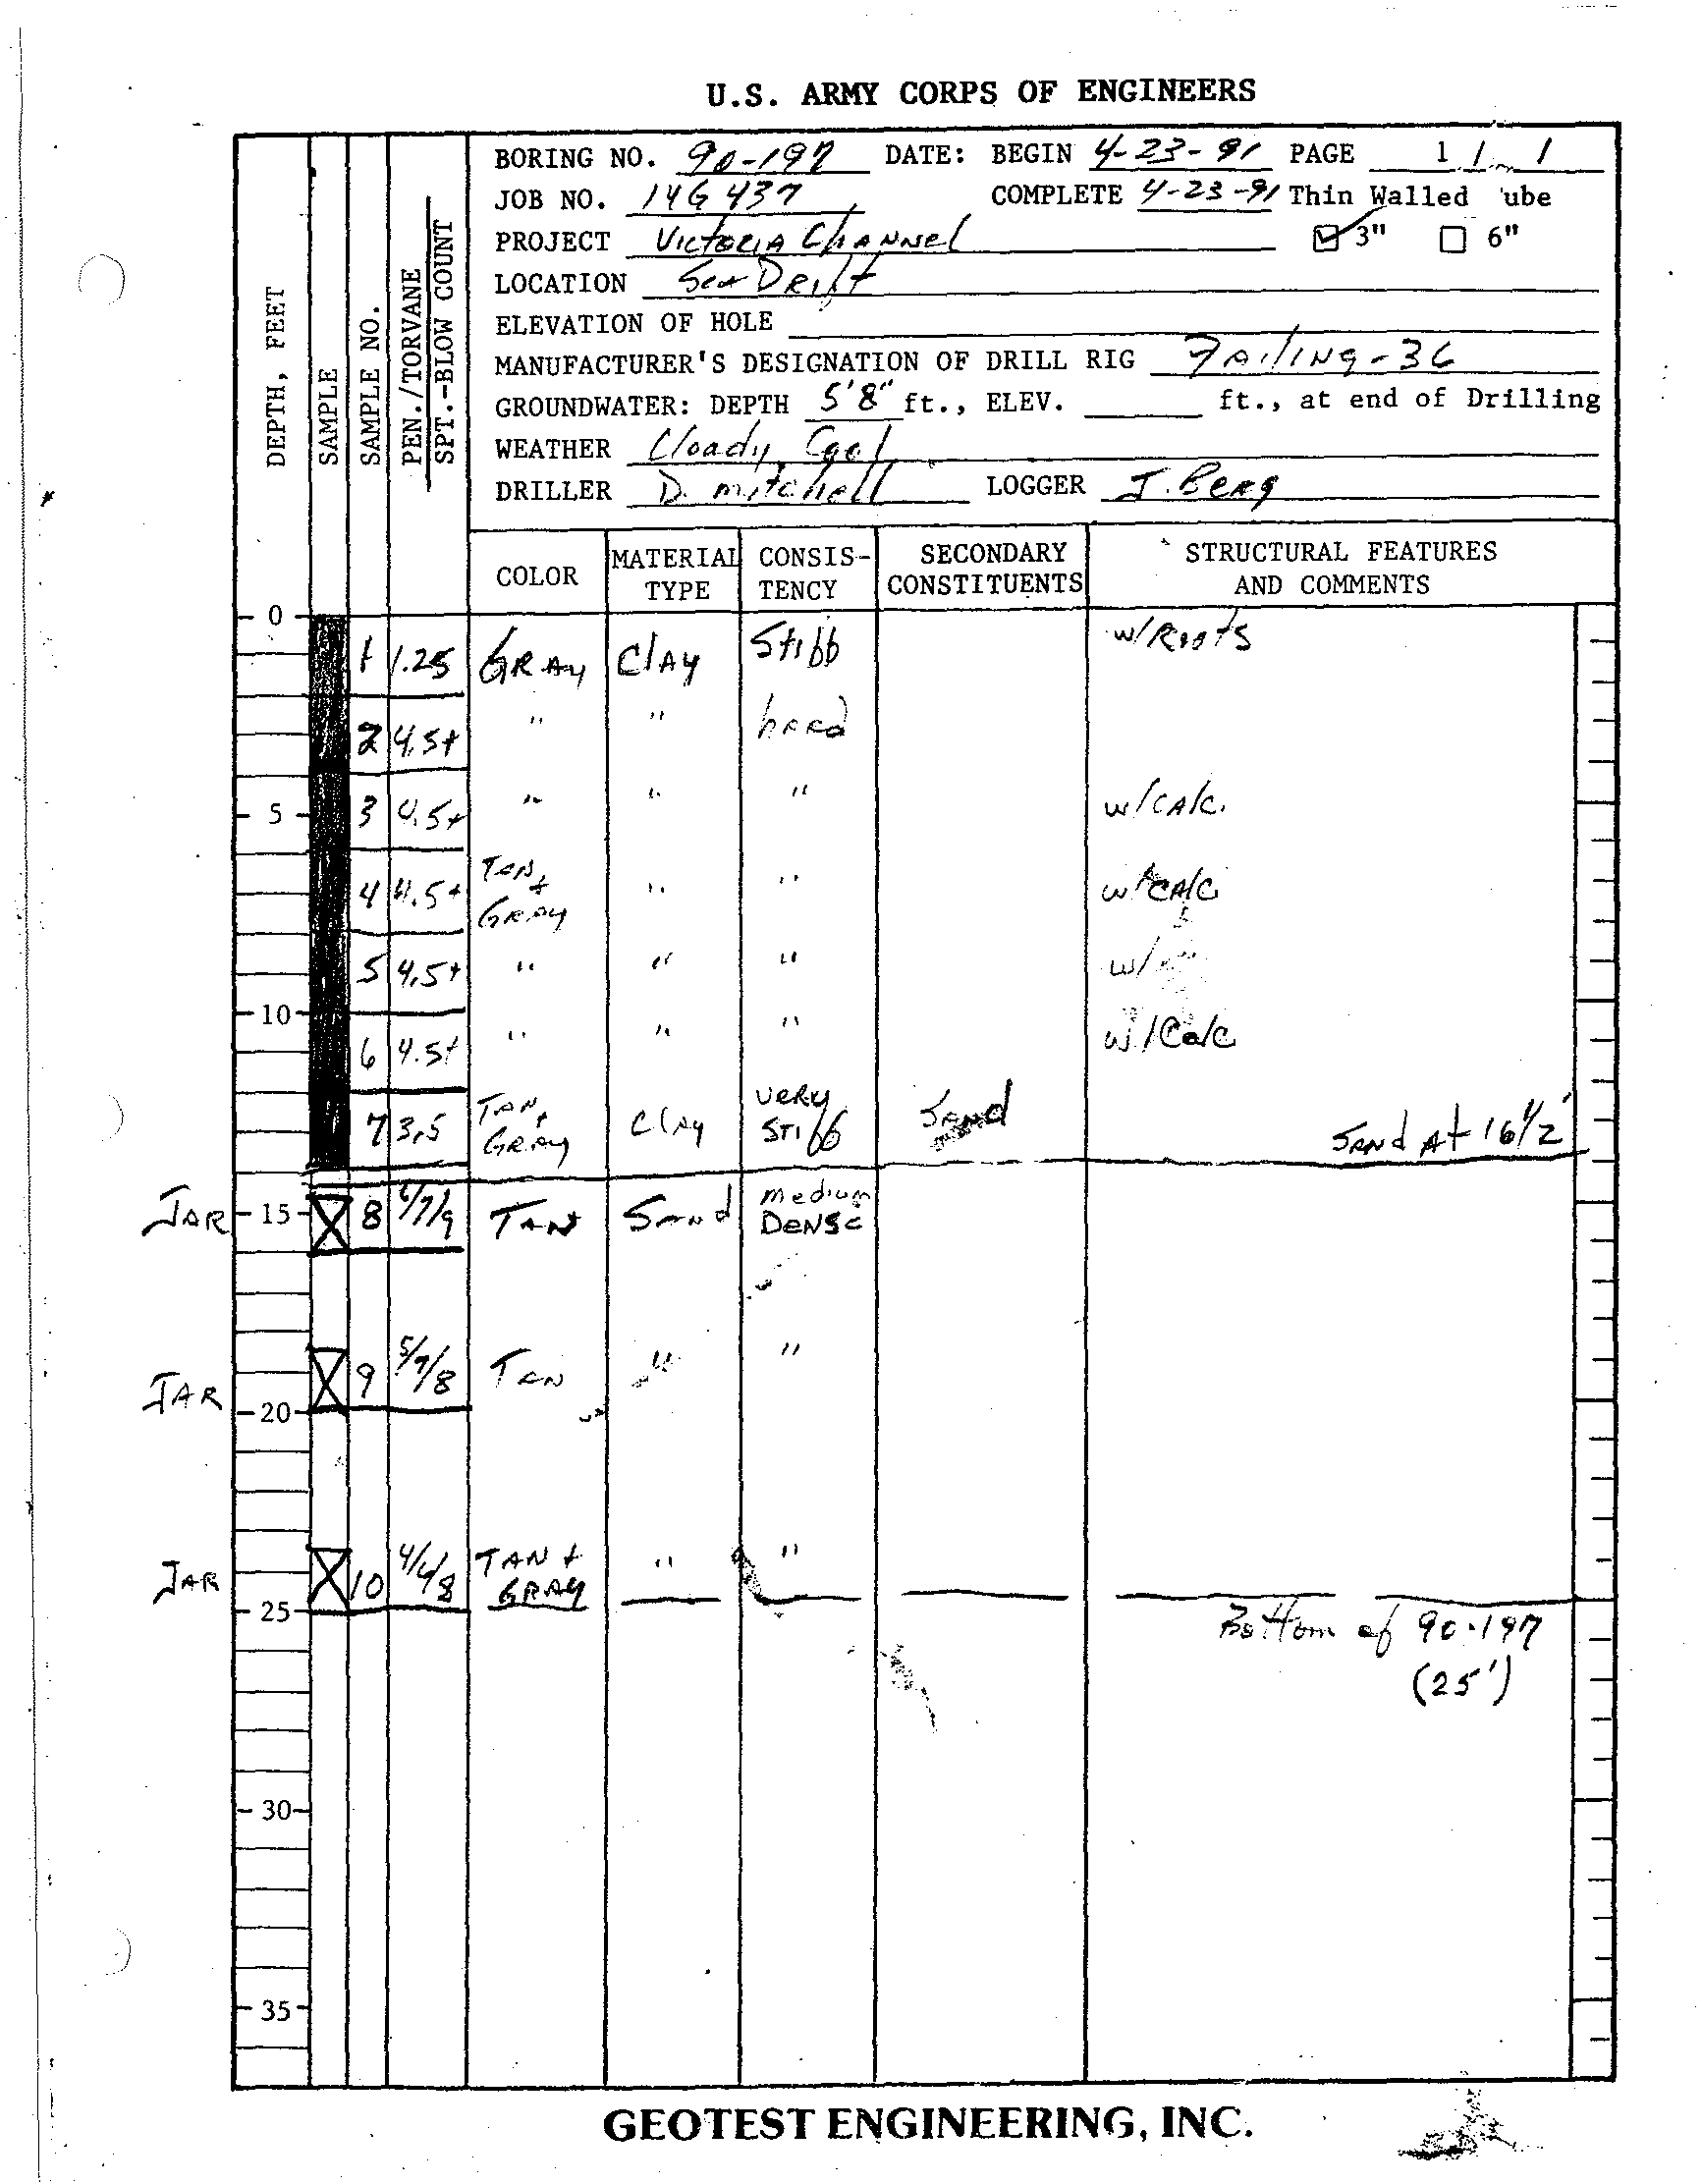 U.S. ARMY CORPS OF ENGINEERS
BORING NO. 90-197 DATE: BEGIN 4-23-91 PAGE 1 / 1
JOB NO. 14G 437 COMPLETE 4-23-91 Thin Walled ube
PROJECT Victoria Channel 3" 6"
LOCATION Sea Drift
ELEVATION OF HOLE
MANUFACTURER'S DESIGNATION OF DRILL RIG Failing-36
GROUNDWATER: DEPTH 5'8" ft., ELEV. ft., at end of Drilling
WEATHER Cloady, Cool
DRILLER D. mitchell LOGGER J. Berg
DEPTH, FEET
SAMPLE
SAMPLE NO.
PEN./TORVANE
SPT.-BLOW COUNT
COLOR MATERIAL TYPE CONSIS-TENCY SECONDARY CONSTITUENTS STRUCTURAL FEATURES AND COMMENTS
0
1 1.25 GRAY Clay Stiff w/Roots
2 4.5+ " " hard
5 3 4.5+ " " " w/calc.
4 4.5+ Tan + Gray " " w/calc
5 4.5+ " " " w/
10
6 4.5+ " " " w/Calc
7 3.5 Tan + Gray Clay very stiff Sand Sand At 16 1/2'
JAR 15 8 6/7/9 TAN Sand medium Dense
JAR 9 5/7/8 Tan " "
20
JAR 10 4/6/8 TAN + GRAY " "
25
Bottom of 90-197
(25')
30
35
GEOTEST ENGINEERING, INC.